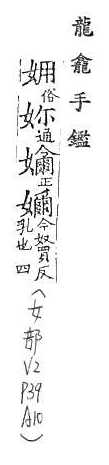 龍龕手鑑
俗妳通嬭正嬭今奴買反乳也四
(女部 V2 P39 A10)